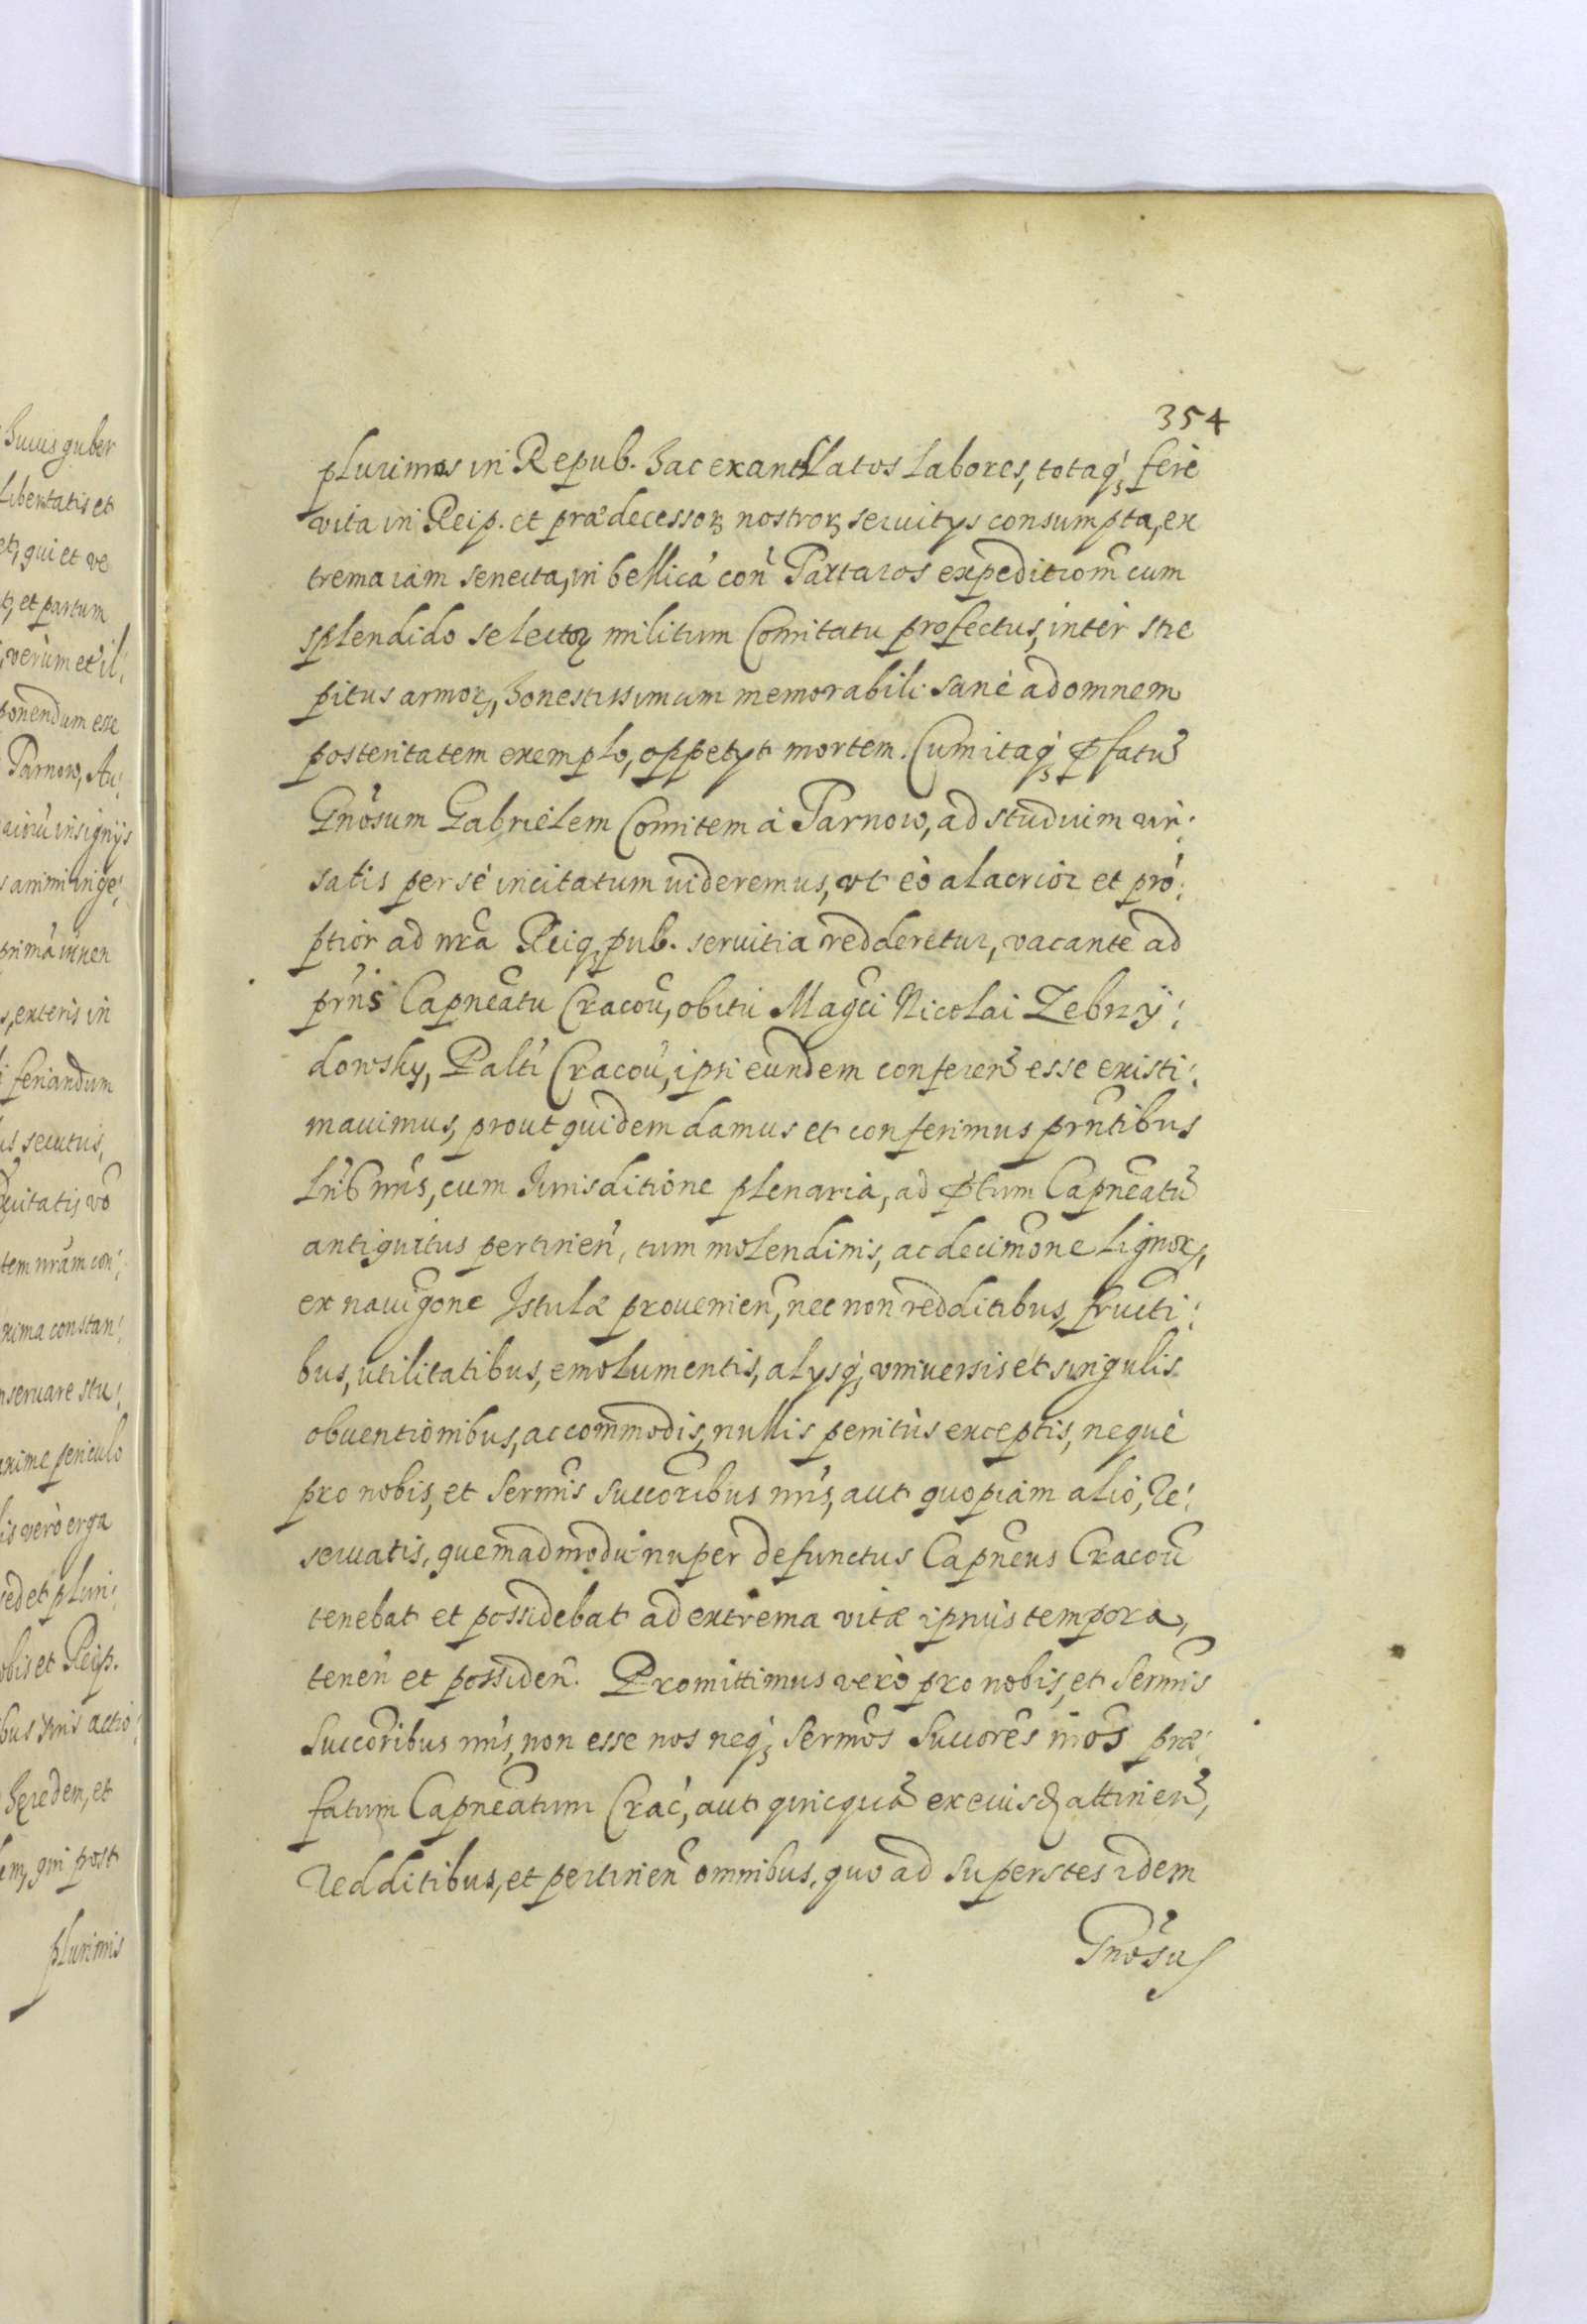 huius guber
Libertatis et
et, qui et ve
t, et partum
verùm et il:
ponendum esse
Tarnow, Au:
insignijs
animi inge:
primâ iuuen
s, exteris in
feriandum
is secutus,
tem nrãm con:
xima constan:
nseruare stu:
axime periculo
is verò erga
sed et pluri:
obis et Reip.
bus nris actio:
heredem, et
em, qui post
plurimis
354
plurimos in Repub. hac exantlatos labores, totaq; ferè
vita in Reip. et prædecessorꝝ nostrorꝝ seruitys consumpta, ex
trema iam senecta, in bellicá con̄ Tartaros expeditiom̃ cum
splendido selectorꝝ militum Comitatu profectus, intèr stre
pitus armorꝝ, honestissimam memorabili sanè ad omnem
posteritatem exemplo, oppetyt mortem. Cum itaq; p̃fatũ
Gnõsum Gabrielem Comitem à Tarnow, ad studuim vir:
satis per sè incitatum uideremus, vt eò alacrior et pró:
ptior ad nrã Reiq; pub. seruitia redderetur, vacante ad
prñs Capneãtu Cracou, obitu Magci Nicolai Zebrzÿ:
dowsky, Palti Cracou, ipsi eundem conferen̄ esse existi:
mauimus, prout quidem damus et conferimus prñtibus
Lrĩb nris, cum Iurisditione plenaria, ad p̃tum Capneãtũ
antiquitus pertinen̄, tum molendinis, ac decimõne lignorꝝ,
ex nauigõne Istulæ prouenien̄, nec non redditibus, fructi:
bus, utilitatibus, emolumentis, alysq; vniuersis et singulis
obuentionibus, ac commodis, nullis penitùs exceptis, nequè
pro nobis, et Sermis Succoribus nris, aut quopiam alio, re:
seruatis, quemadmodũ nuper defunctus Capneus Cracou
tenebat et possidebat ad extrema vitæ ipsius tempora,
tenen̄ et possiden̄. Promittimus verò pro nobis, et Sermis
Succoribus nris, non esse nos neq; Sermos Succores nros præ:
fatum Capneãtum Crac, aut quicquã ex eiusd attinen̄,
Redditibus, et pertinen̄ omnibus, quo ad superstes idem
Gnõsus